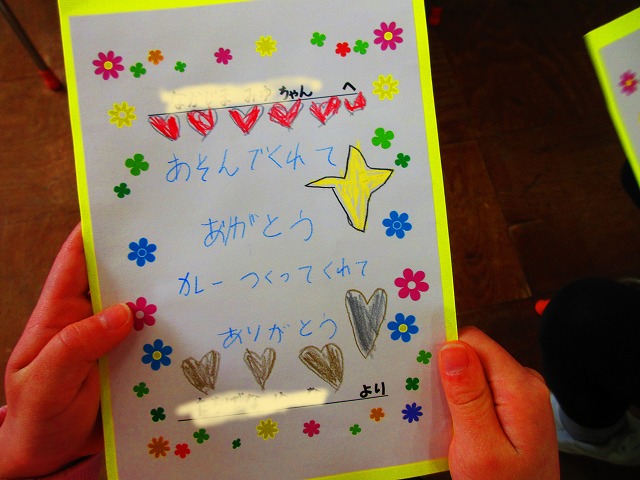 ちゃん へ
あそんでくれて
おがとう
カレー つくってくれて
ありがとう
より